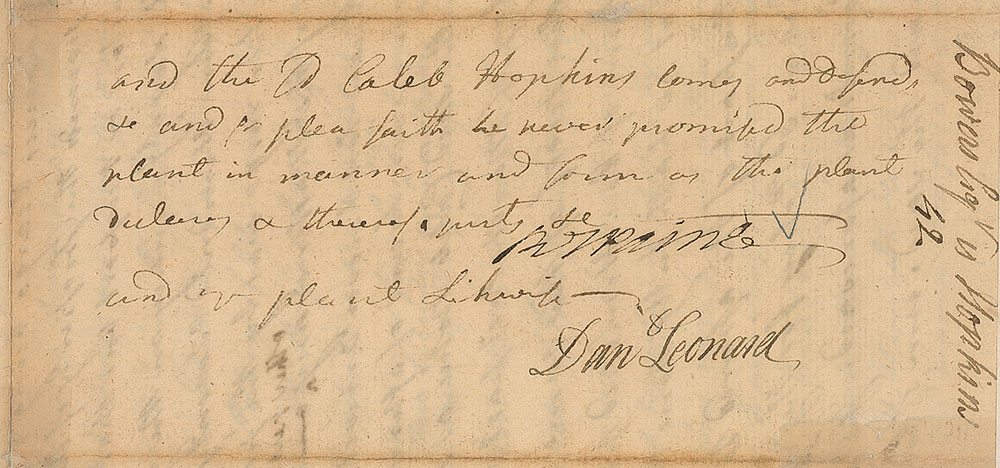 and the sd Caleb Hopkins comes and defends
&c and for plea saith he never promised the
plant in manner and form as the plant
declares & thereof puts &c
RTPaine
and ye plant Likewise
Danl Leonard
Bowers v Hopkins
42